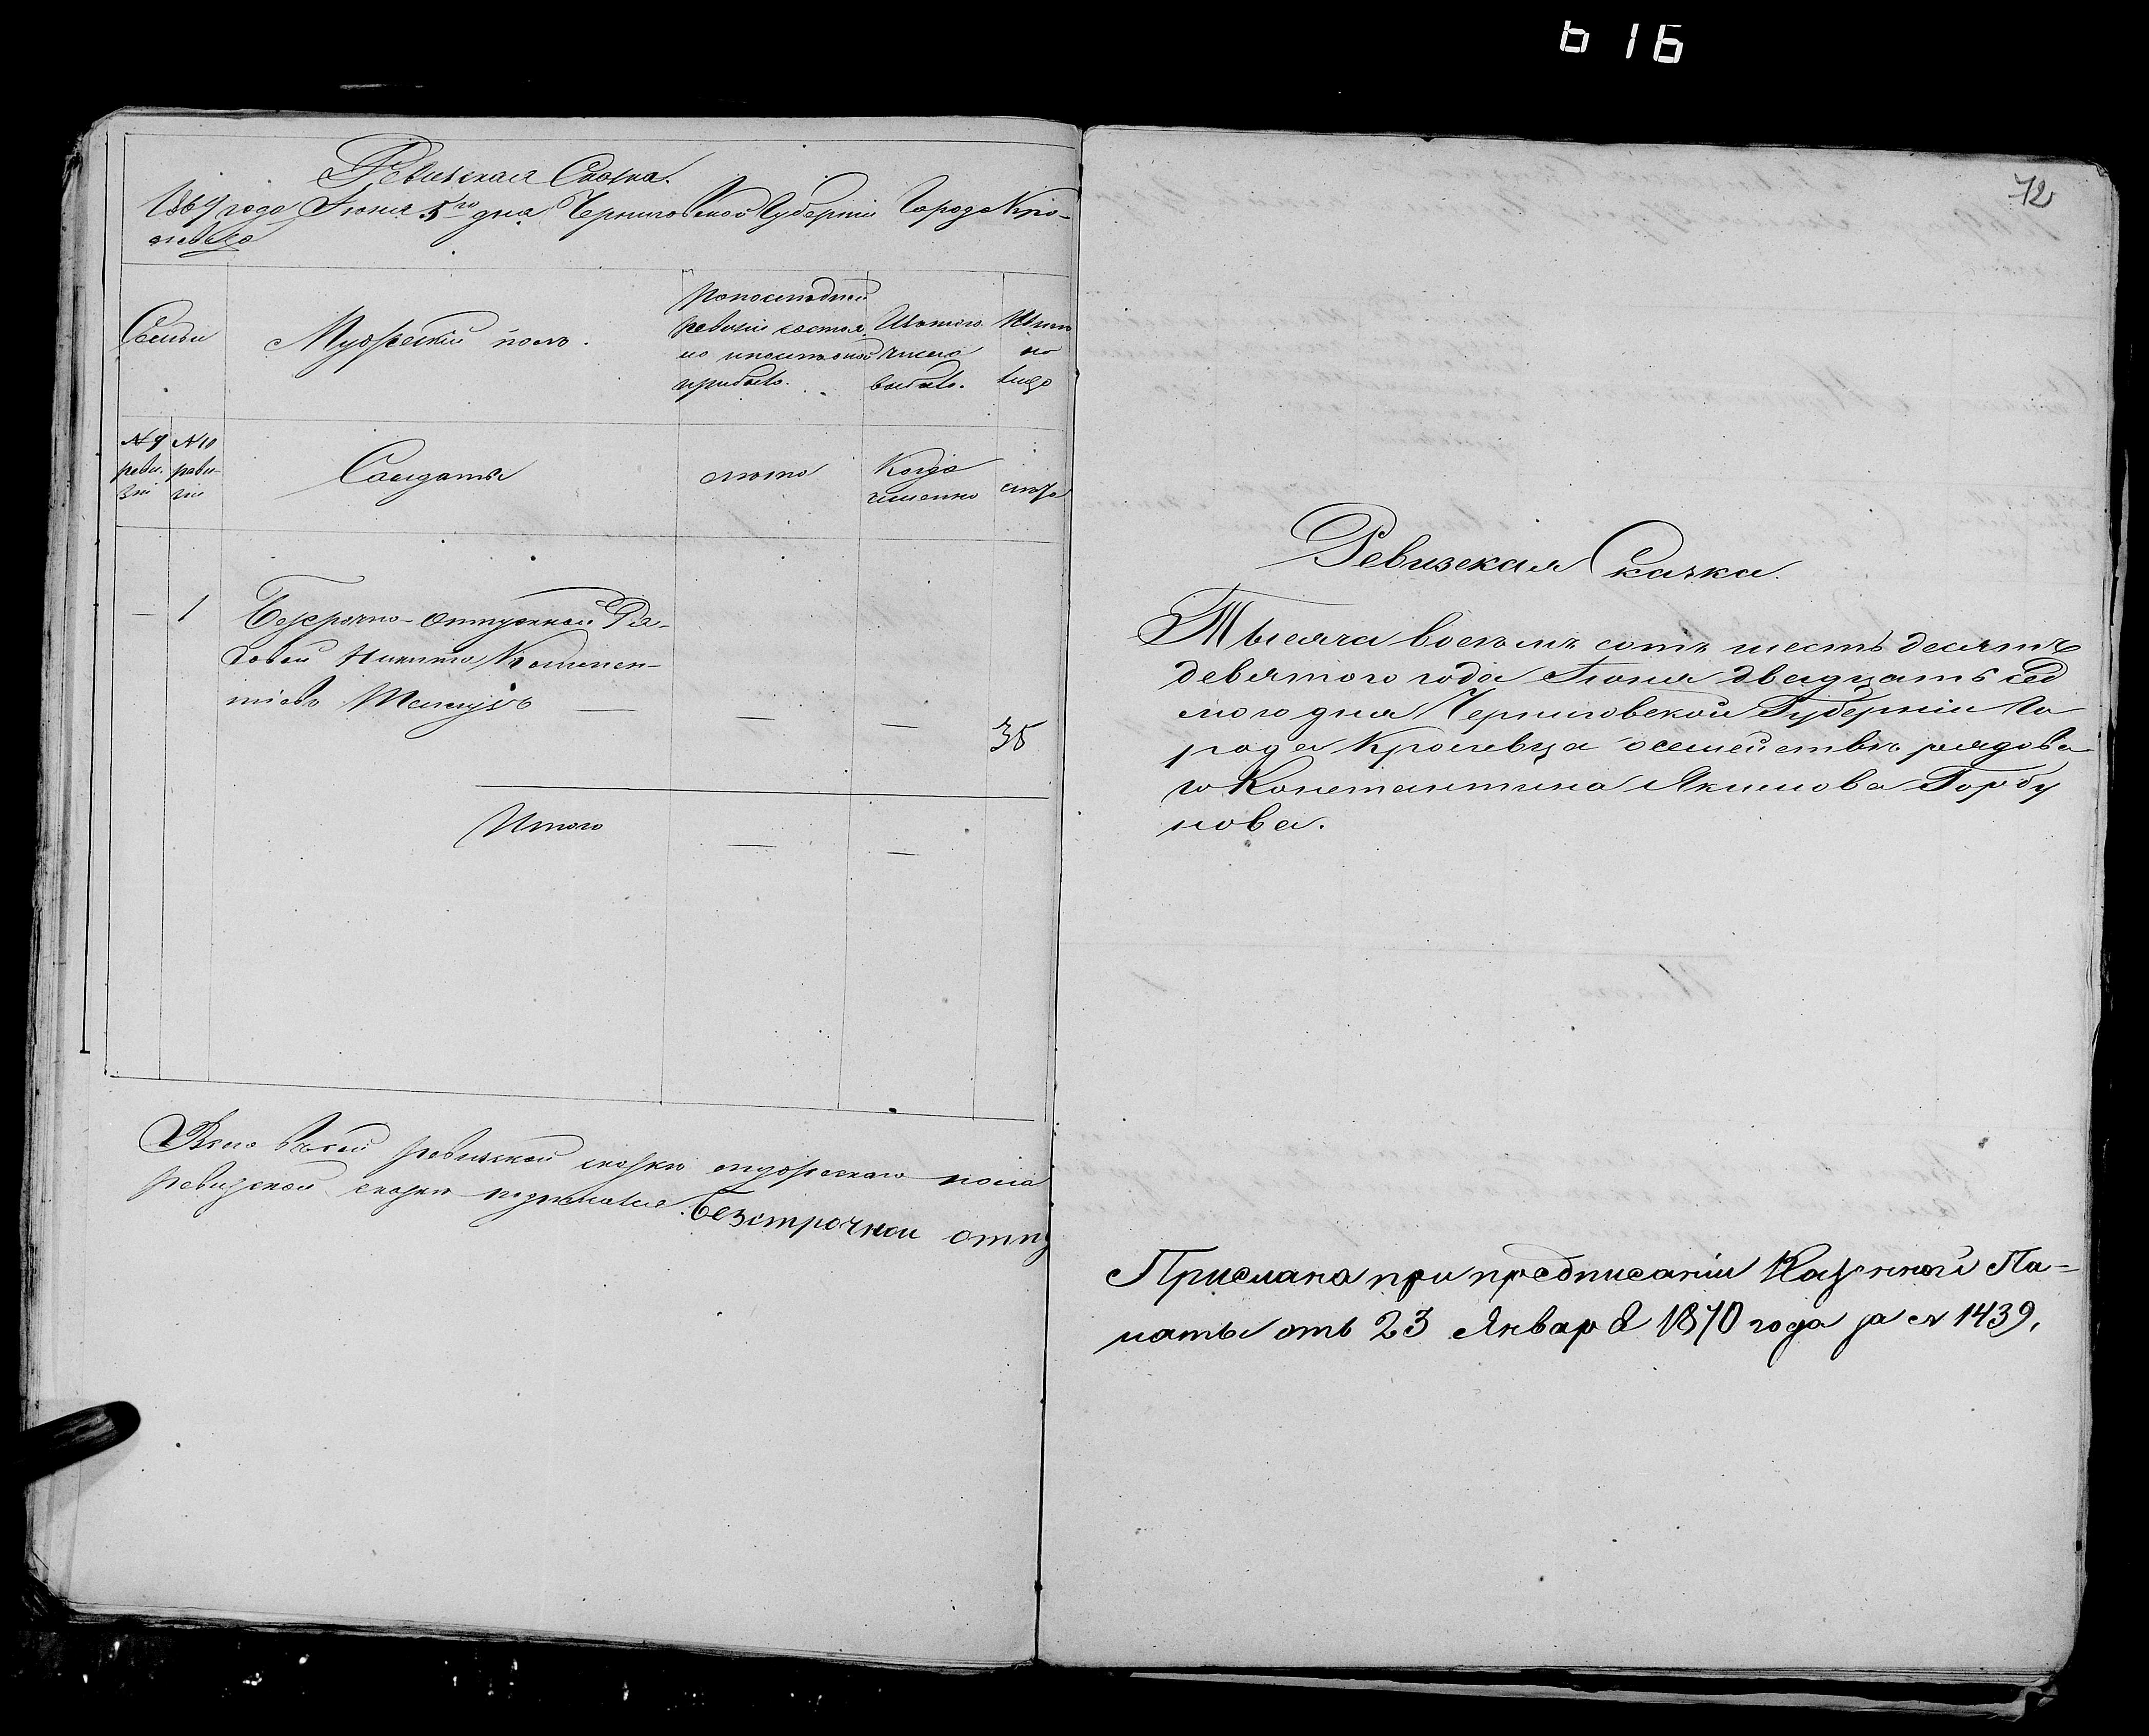 616
Ревизская Сказка.
1869 года Іюня 5го дня Черниговской Губерніи Города Кро-
левца
Семьи
Мужескій полъ.
По последней
ревизіи состоя
ло и после оной
прибыло.
Изъ того
числа
выбыло.
Ныне
на
лицо
№ 9 реви- зіи
№ 10 реви- зіи
Солдаты
лета
Когда
именно
лета
— 1 Безсрочно-отпускной Ря-
довой Никита Клемен-
тіевъ — — — 35
Итого — —
Всего въ сей ревизской сказке мужескаго пола
ревизской сказке Безстрочной отпу
72
Ревизская Сказка.
Тысяча восемъ сотъ шесть десятъ
девятого года Іюня двадцать сед
мого дня Черниговской Губерніи Го
рода Кролевца о семействе рядова
го Константина Якимова Горбу
нова.
Прислана при предписаніи Казенной Па-
латы отъ 23 Января 1870 года за № 1439.